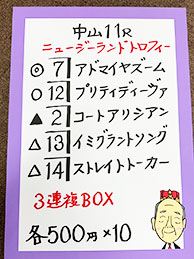 中山11R
ニュージーランドトロフィー
◎7 アドマイヤズーム
○12 プリティディーヴァ
▲2 コートアリシアン
△13 イミグラントソング
△14 ストレイトトーカー
3連複BOX
各500円×10